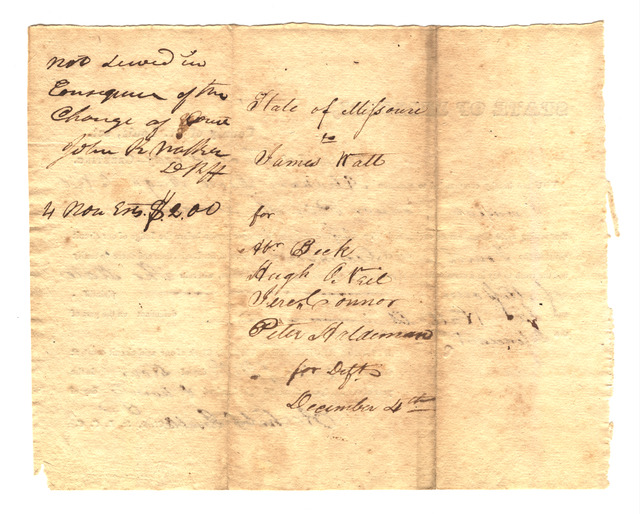 not served in
Consequence of the
Change of Court
John K Walker
4 Non Ests. $2.00
State of Missouri
to
James Watt
for
Abr. Beck
Hugh O. Neil
Jere Connor
Peter Haldeman
for Deft
December 4th